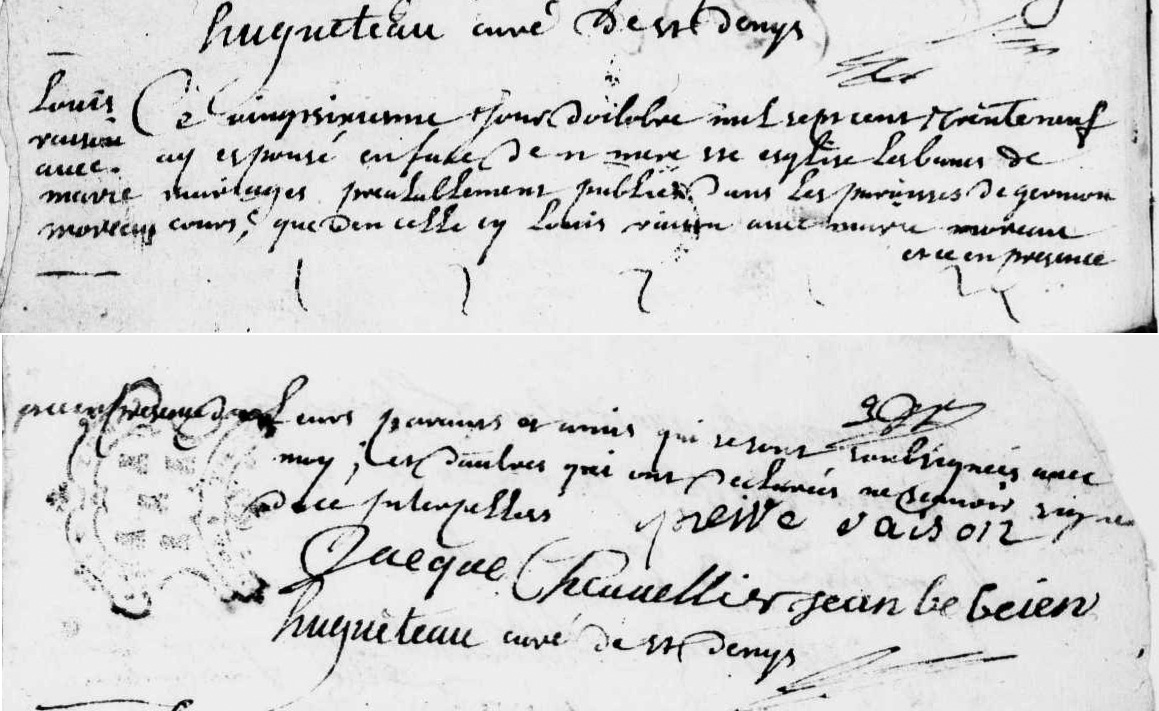 huqueteau curé de st denys
Louis
raison
avec
marie
moreau
Ce vingtsixiesme Jour doctobre mil sept cent Trenteneuf
ay espousé en face de n mere ste esglise les bans de
mariages prealablement publiés dans les paroisses de germon
cours, que den celle cy Louis raison avec marie moreau
et ce en presence
et ce en presence de Leurs parans et amis qui se sont soubsignés avec
moy, et dautres qui ont declarés ne scavoir signer
de ce Interpellers
pierre raison
Jacque Chevallier jean
huqueteau curé de st denys